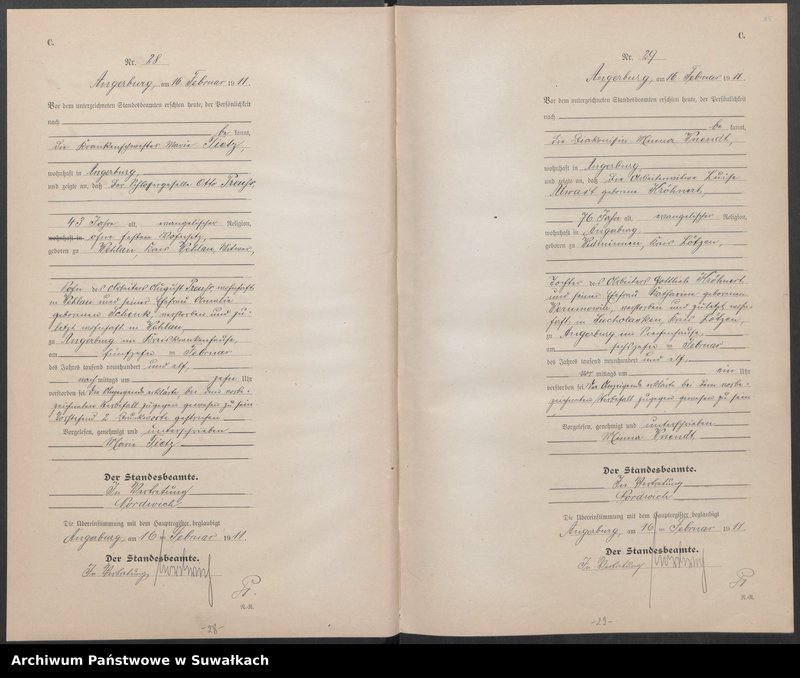 C.
Nr. 28
Angerburg, am 16 Februar 1911.
Vor dem unterzeichneten Standesbeamten erschien heute, der Persönlichkeit
nach
be kannt,
die Krankenschwester Marie Tietz,
wohnhaft in Angerburg,
und zeigte an, daß der Schlossergeselle Otto
43 Jahre alt, evangelischer Religion,
wohnhaft in ohne festen Wohnsitz,
geboren zu Wehlau, Kreis Wehlau, Witwer,
Sohn des Arbeiters August wohnhaft
in Wehlau und seiner Ehefrau Amalie
geborenen Schenk, verstorben und zu-
letzt wohnhaft in Wehlau,
zu Angerburg im Kreiskrankenhause,
am fünfzehn ten Februar
des Jahres tausend neunhundert und elf,
nach mittags um zehn Uhr
verstorben sei. Die Anzeigende erklärte bei dem vorbe-
zeichneten Sterbefall zugegen gewesen zu sein
Vorstehend 2 Druckworte gestrichen
Vorgelesen, genehmigt und unterschrieben
Marie Tietz
Der Standesbeamte.
In Vertretung
Nordwich
Die Übereinstimmung mit dem Hauptregister beglaubigt
Angerburg, am 16 ten Februar 1911.
Der Standesbeamte.
In Vertretung
N.-R.
-28-
15
C.
Nr. 29
Angerburg, am 16 Februar 1911.
Vor dem unterzeichneten Standesbeamten erschien heute, der Persönlichkeit
nach
be kannt,
die Diakonissin Minna
wohnhaft in Angerburg,
und zeigte an, daß die Arbeiterwitwe Luise
geborene Kröhnert,
76 Jahre alt, evangelischer Religion,
wohnhaft in Angerburg
geboren zu Widminnen, Kreis Lötzen,
Tochter des Arbeiters Gottlieb Kröhnert
und seiner Ehefrau Katharine geborenen
verstorben und zuletzt wohn-
haft in Kreis Lötzen,
zu Angerburg im Siechenhause,
am sechszehn ten Februar
des Jahres tausend neunhundert und elf
vor mittags um ein Uhr
verstorben sei. Die Anzeigende erklärte bei dem vorbe-
zeichneten Sterbefall zugegen gewesen zu sein
Vorgelesen, genehmigt und unterschrieben
Minna
Der Standesbeamte.
In Vertretung
Nordwich
Die Übereinstimmung mit dem Hauptregister beglaubigt
Angerburg, am 16 ten Februar 1911.
Der Standesbeamte.
In Vertretung
N.-R.
-29-
Archiwum Państwowe w Suwałkach